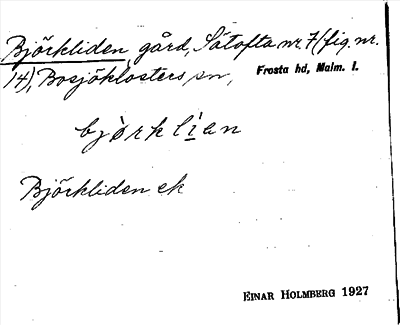 Björkliden gård, Sätofta nr 7 (fig. nr.
14), Bosjöklosters sn, Frosta hd, Malm. l.
bjö̀rklíən
Björkliden ek
EINAR HOLMBERG 1927